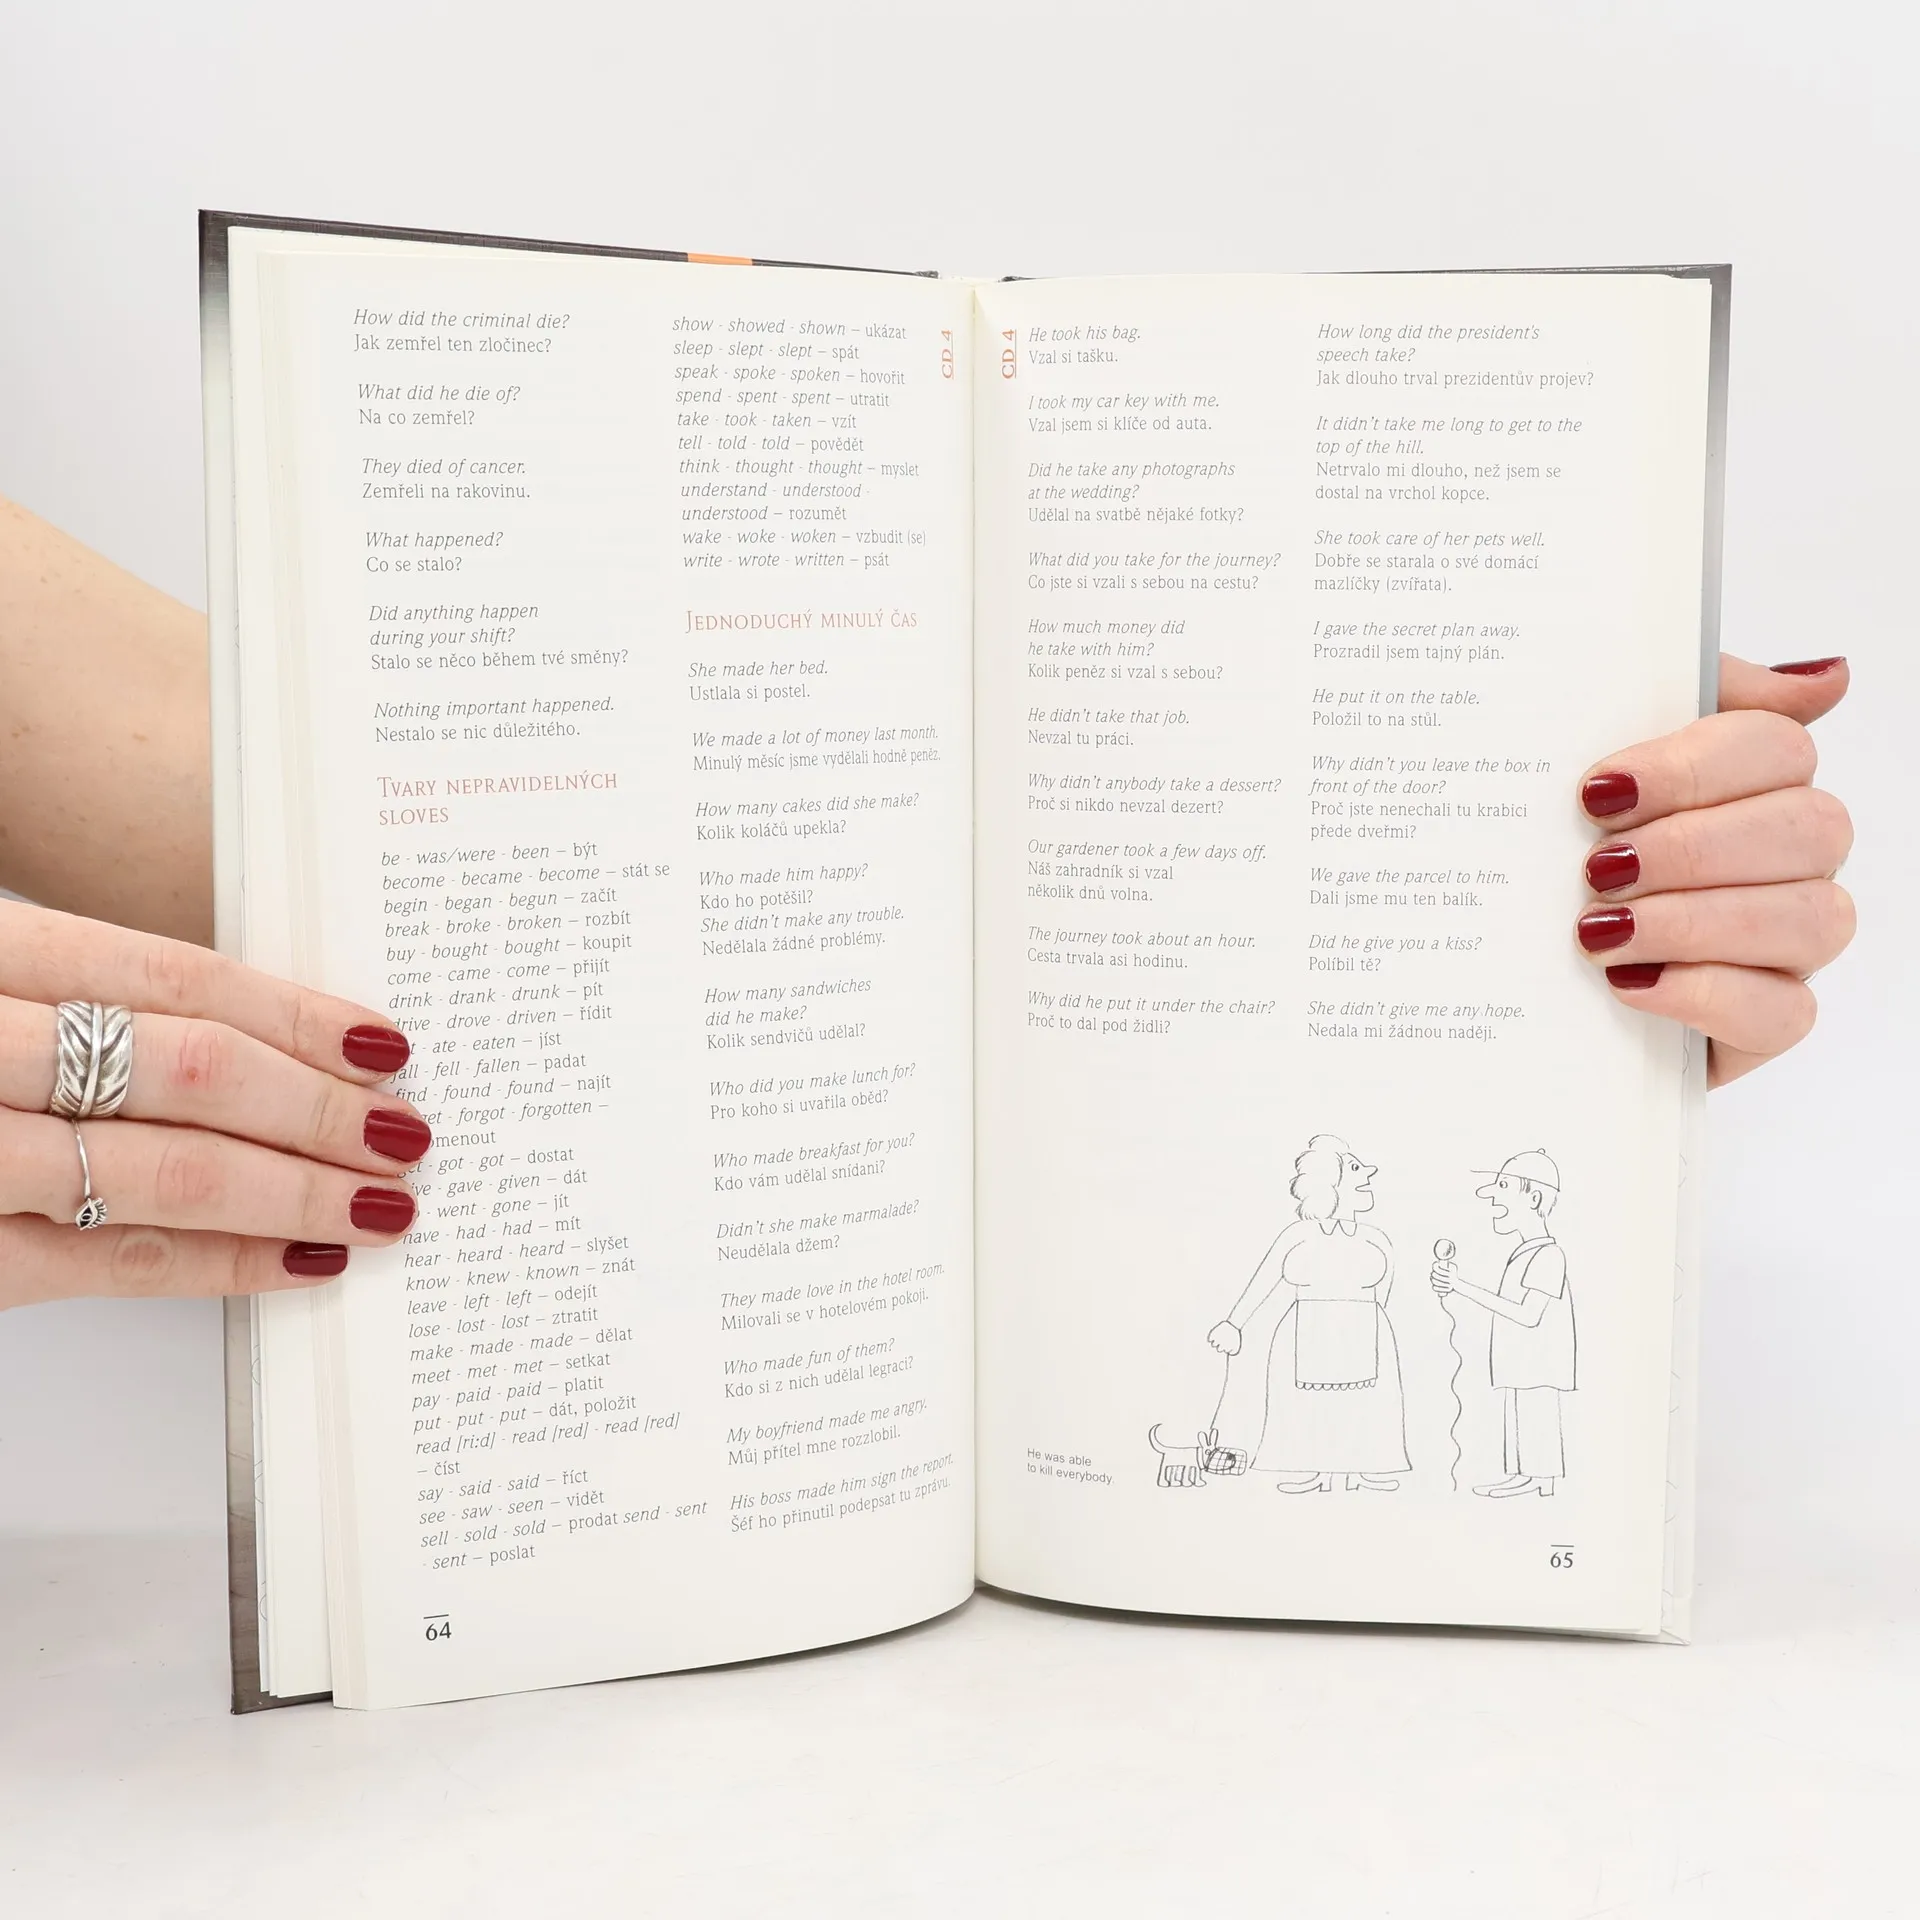 How did the criminal die?
Jak zemřel ten zločinec?
What did he die of?
Na co zemřel?
They died of cancer.
Zemřeli na rakovinu.
What happened?
Co se stalo?
Did anything happen
during your shift?
Stalo se něco během tvé směny?
Nothing important happened.
Nestalo se nic důležitého.
TVARY NEPRAVIDELNÝCH
SLOVES
be - was/were - been – být
become - became - become – stát se
begin - began - begun – začít
break - broke - broken – rozbít
buy - bought - bought – koupit
come - came - come – přijít
drink - drank - drunk – pít
drive - drove - driven – řídit
- ate - eaten – jíst
fall - fell - fallen – padat
find - found - found – najít
- forgot - forgotten –
get - got - got – dostat
- gave - given – dát
- went - gone – jít
have - had - had – mít
hear - heard - heard – slyšet
know - knew - known – znát
leave - left - left – odejít
lose - lost - lost – ztratit
make - made - made – dělat
meet - met - met – setkat
pay - paid - paid – platit
put - put - put – dát, položit
read [ri:d] - read [red] - read [red]
– číst
say - said - said – říct
see - saw - seen – vidět
sell - sold - sold – prodat send - sent
- sent – poslat
64
show - showed - shown – ukázat
sleep - slept - slept – spát
speak - spoke - spoken – hovořit
spend - spent - spent – utratit
take - took - taken – vzít
tell - told - told – povědět
think - thought - thought – myslet
understand - understood -
understood – rozumět
wake - woke - woken – vzbudit (se)
write - wrote - written – psát
JEDNODUCHÝ MINULÝ ČAS
She made her bed.
Ustlala si postel.
We made a lot of money last month.
Minulý měsíc jsme vydělali hodně peněz.
How many cakes did she make?
Kolik koláčů upekla?
Who made him happy?
Kdo ho potěšil?
She didn't make any trouble.
Nedělala žádné problémy.
How many sandwiches
did he make?
Kolik sendvičů udělal?
Who did you make lunch for?
Pro koho si uvařila oběd?
Who made breakfast for you?
Kdo vám udělal snídani?
Didn't she make marmalade?
Neudělala džem?
They made love in the hotel room.
Milovali se v hotelovém pokoji.
Who made fun of them?
Kdo si z nich udělal legraci?
My boyfriend made me angry.
Můj přítel mne rozzlobil.
His boss made him sign the report.
Šéf ho přinutil podepsat tu zprávu.
CD 4
CD 4
He took his bag.
Vzal si tašku.
I took my car key with me.
Vzal jsem si klíče od auta.
Did he take any photographs
at the wedding?
Udělal na svatbě nějaké fotky?
What did you take for the journey?
Co jste si vzali s sebou na cestu?
How much money did
he take with him?
Kolik peněz si vzal s sebou?
He didn't take that job.
Nevzal tu práci.
Why didn't anybody take a dessert?
Proč si nikdo nevzal dezert?
Our gardener took a few days off.
Náš zahradník si vzal
několik dnů volna.
The journey took about an hour.
Cesta trvala asi hodinu.
Why did he put it under the chair?
Proč to dal pod židli?
How long did the president's
speech take?
Jak dlouho trval prezidentův projev?
It didn't take me long to get to the
top of the hill.
Netrvalo mi dlouho, než jsem se
dostal na vrchol kopce.
She took care of her pets well.
Dobře se starala o své domácí
mazlíčky (zvířata).
I gave the secret plan away.
Prozradil jsem tajný plán.
He put it on the table.
Položil to na stůl.
Why didn't you leave the box in
front of the door?
Proč jste nenechali tu krabici
přede dveřmi?
We gave the parcel to him.
Dali jsme mu ten balík.
Did he give you a kiss?
Políbil tě?
She didn't give me any hope.
Nedala mi žádnou naději.
He was able
to kill everybody.
65